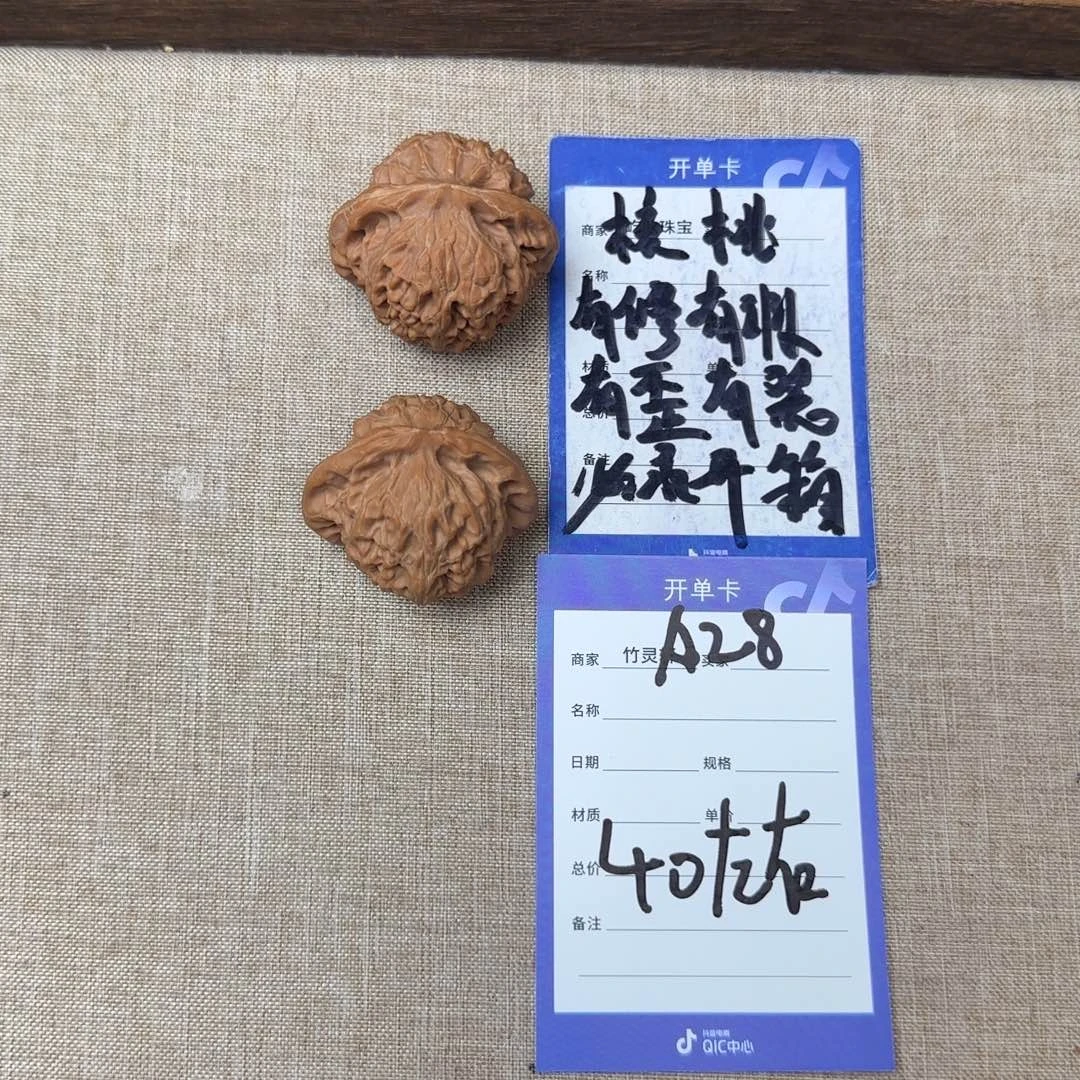 开单卡
商家 珠宝
核桃
名称
有修有瑕
材质 单
有歪有裂
总价
备注
必录开箱
抖音电商
开单卡
A28
商家 竹灵 买家
名称
日期 规格
材质 单价
40左右
总价
备注
抖音电商
QIC中心